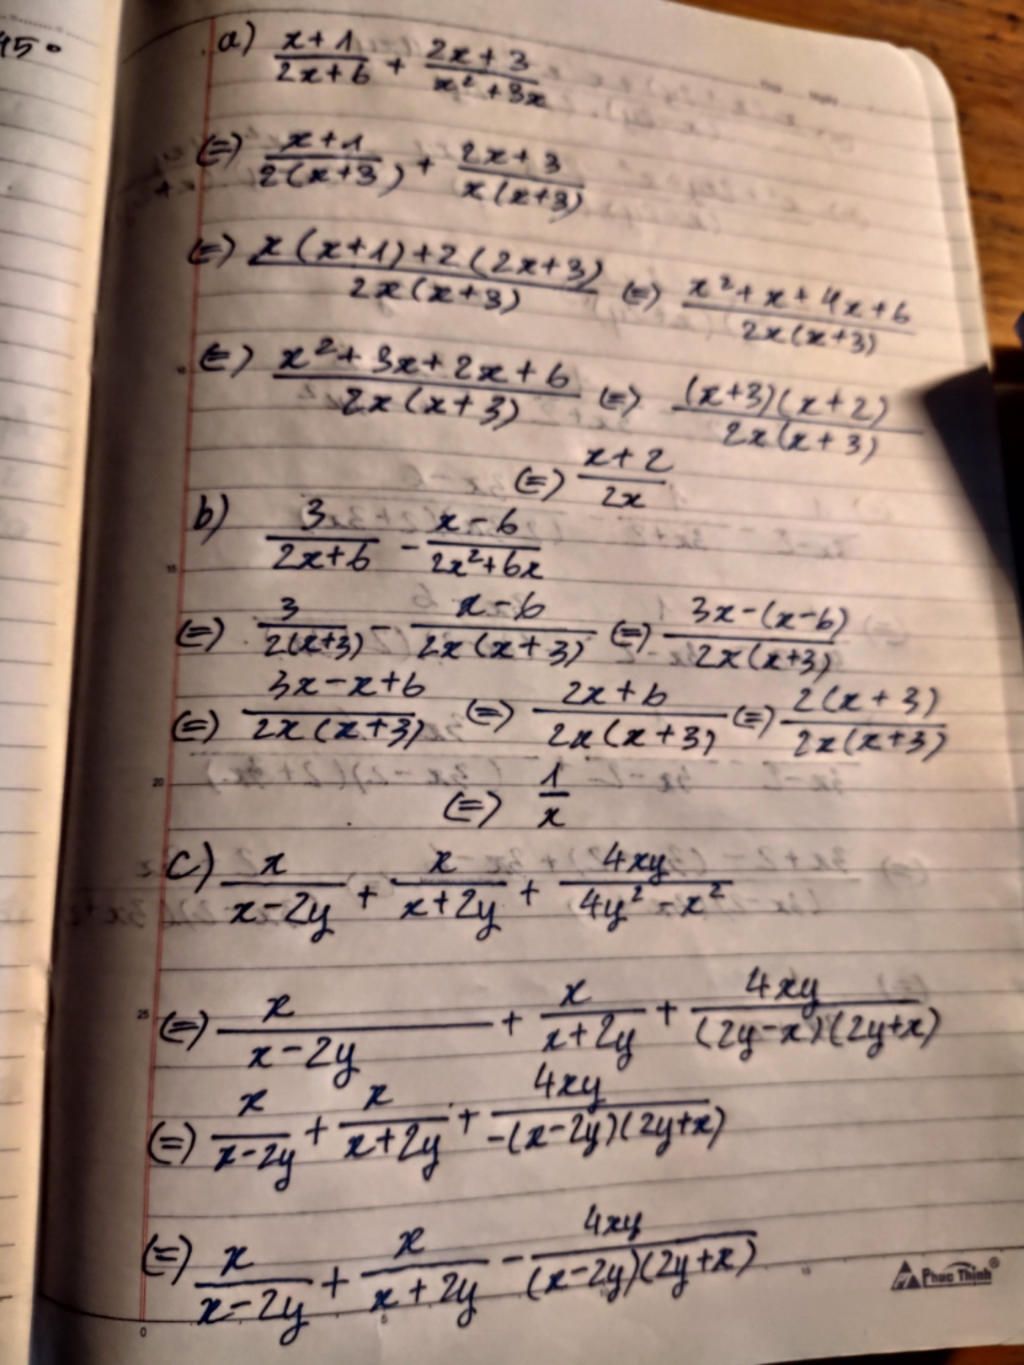 45°
a) (x+1)/(2x+6) + (2x+3)/(x²+3x)
(=) (x+1)/(2(x+3)) + (2x+3)/(x(x+3))
(=) (x(x+1)+2(2x+3))/(2x(x+3)) (=) (x²+x+4x+6)/(2x(x+3))
(=) (x²+3x+2x+6)/(2x(x+3)) (=) ((x+3)(x+2))/(2x(x+3))
(=) (x+2)/(2x)
b) 3/(2x+6) - (x-6)/(2x²+6x)
(=) 3/(2(x+3)) - (x-6)/(2x(x+3)) (=) (3x-(x-6))/(2x(x+3))
(=) (3x-x+6)/(2x(x+3)) (=) (2x+6)/(2x(x+3)) (=) (2(x+3))/(2x(x+3))
(=) 1/x
c) x/(x-2y) + x/(x+2y) + 4xy/(4y²-x²)
(=) x/(x-2y) + x/(x+2y) + 4xy/((2y-x)(2y+x))
(=) x/(x-2y) + x/(x+2y) + 4xy/(-(x-2y)(2y+x))
(=) x/(x-2y) + x/(x+2y) - 4xy/((x-2y)(2y+x))
Phuc Thinh®